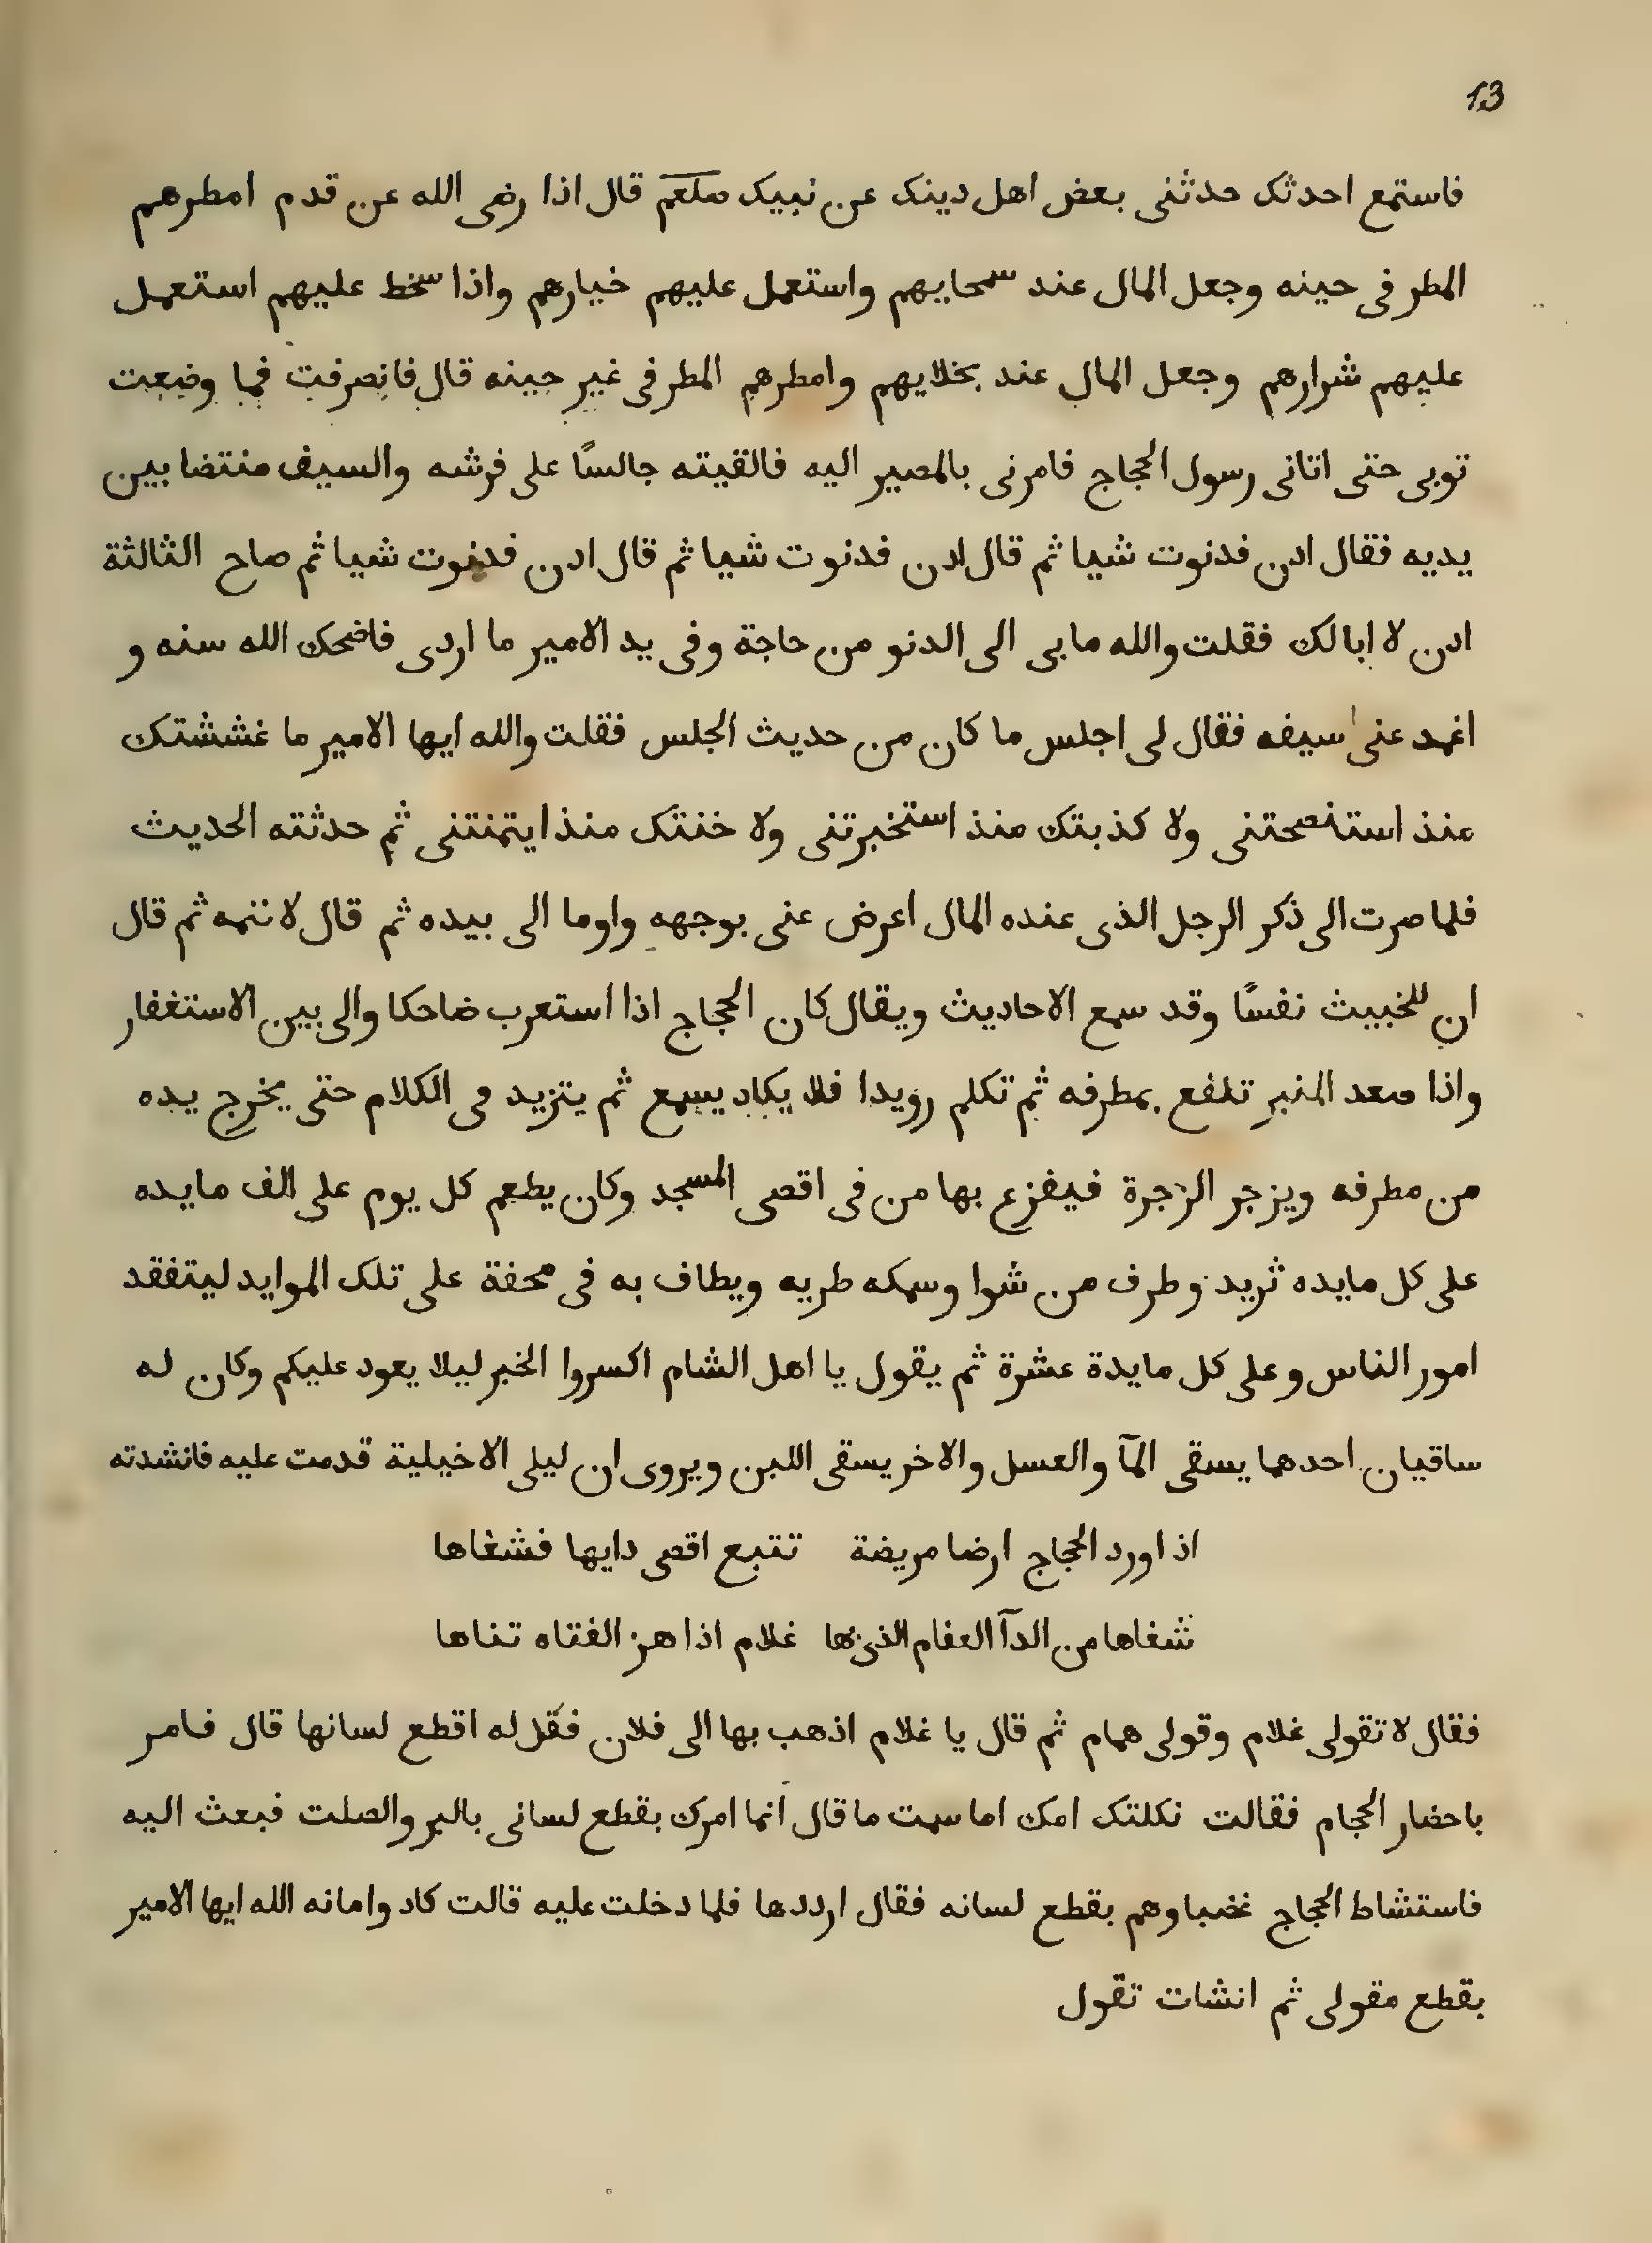 13
فاستمع احدثك حدثنى بعض اهل دينك عن نبيك صلعم قال اذا رضى الله عن قدم امطرهم
المطر فى حينه وجعل المال عند سمحايهم واستعمل عليهم خيارهم واذا سخط عليهم استعمل
عليهم شرارهم وجعل المال عند بخلايهم وامطرهم المطر فى غير حينه قال فانصرفت فما وضعت
توبى حتى اتانى رسول الحجاج فامرنى بالمصير اليه فالقيته جالسًا على فرشه والسيف منتضا بين
يديه فقال ادن فدنوت شيا ثم قال ادن فدنوت شيا ثم قال ادن فدنوت شيا ثم صاح الثالثة
ادن لا ابا لك فقلت والله ما بى الى الدنو من حاجة وفى يد الامير ما اردى فاضحك الله سنه و
اغمد عنى سيفه فقال لى اجلس ما كان من حديث الجلس فقلت والله ايها الامير ما غششتك
منذ استنصحتنى ولا كذبتك منذ استخبرتنى ولا خنتك منذ ايتمنتنى ثم حدثته الحديث
فلما صرت الى ذكر الرجل الذى عنده المال اعرض عنى بوجهه واوما الى بيده ثم قال لا تنمه ثم قال
ان للخبيث نفسًا وقد سمع الاحاديث ويقال كان الحجاج اذا استعرب ضاحكا والى بين الاستغفار
واذا صعد المنبر تلفع بمطرفه ثم تكلم رويدا فلا يكاد يسمع ثم يتزيد فى الكلام حتى يخرج يده
من مطرفه ويزجر الزجرة فيفزع بها من فى اقصى المسجد وكان يطعم كل يوم على الف مايده
على كل مايده ثريد وطرف من شوا وسمكه طريه ويطاف به فى محفة على تلك الموايد ليتفقد
امور الناس وعلى كل مايدة عشرة ثم يقول يا اهل الشام اكسروا الخبر ليلا يعود عليكم وكان له
ساقيان احدهما يسقى المآ والعسل والاخر يسقى اللبن ويروى ان ليلى الاخيلية قدمت عليه فانشدته
اذا ورد الحجاج ارضا مريضة تتبع اقصى دايها فشفاها
شفاها من الدآ العقام الذى بها غلام اذا هز الفتاه تناها
فقال لا تقولى غلام وقولى همام ثم قال يا غلام اذهب بها الى فلان فقل له اقطع لسانها قال فامر
باحضار الحجام فقالت نكلتك امك اما سمت ما قال انما امرك بقطع لسانى بالبر والصلت فبعث اليه
فاستشاط الحجاج غضبا وهم بقطع لسانه فقال ارددها فلما دخلت عليه قالت كاد وامانه الله ايها الامير
بقطع مقولى ثم انشات تقول